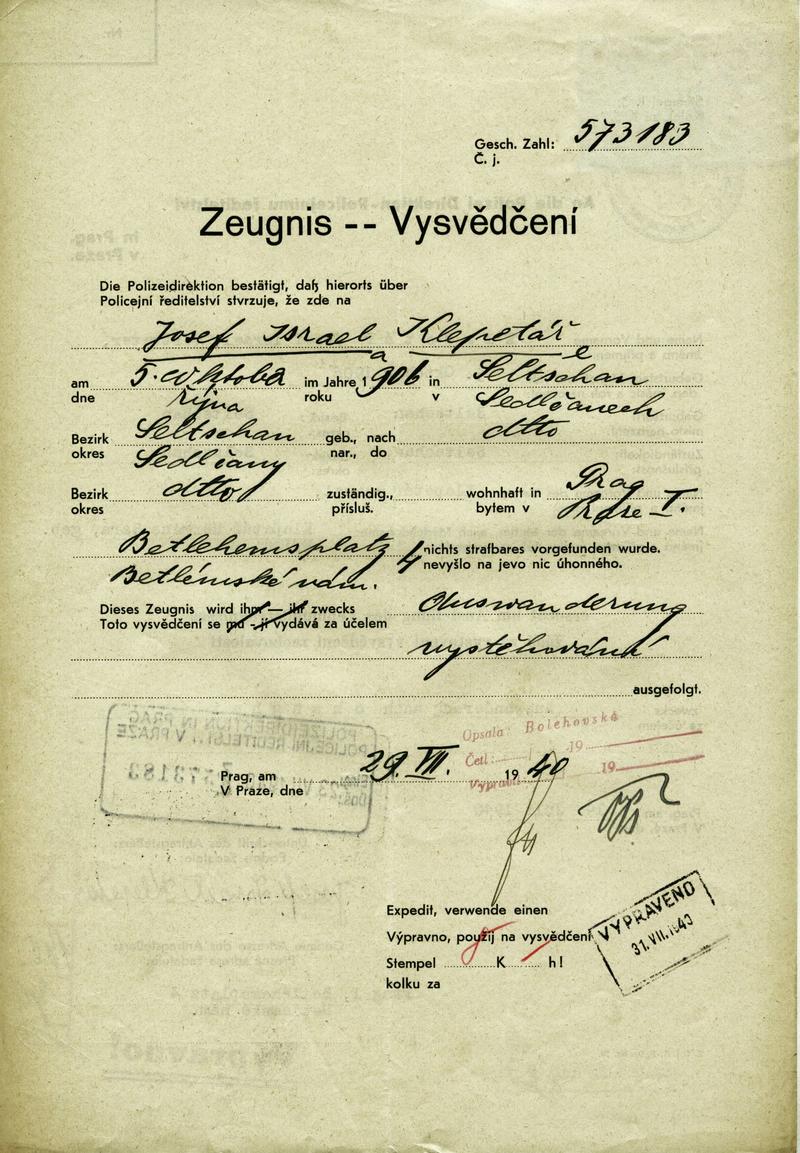 Gesch. Zahl: 573183
Č. j.
Zeugnis -- Vysvědčení
Die Polizeidirektion bestätigt, daß hierorts über
Policejní ředitelství stvrzuje, že zde na
Josef Israel Klepetář
a e
am 5. Oktoba im Jahre 1906 in Seltschan
dne října roku v Sedlčanech
Bezirk Seltschan geb., nach dtto
okres Sedlčany nar., do
Bezirk dtto zuständig., wohnhaft in Prag
okres přísluš. bytem v Praze I.
Betlehemsplatz 4 nichts strafbares vorgefunden wurde.
Betlémské nám. nevyšlo na jevo nic úhonného.
Dieses Zeugnis wird ihm — ihr zwecks
Toto vysvědčení se mu - jí vydává za účelem
vystěhování
ausgefolgt.
POLIZEIDIREKTION IN PRAG
POLICEJNÍ ŘEDITELSTVÍ V PRAZE
573183
Opsala: Bolehovská
Četl: 19
Vypravil 19
Prag, am 29. VII. 1940
V Praze, dne
Expedit, verwende einen
Výpravno, použij na vysvědčení
Stempel K h!
kolku za
VYPRAVENO
31. VII. 1940